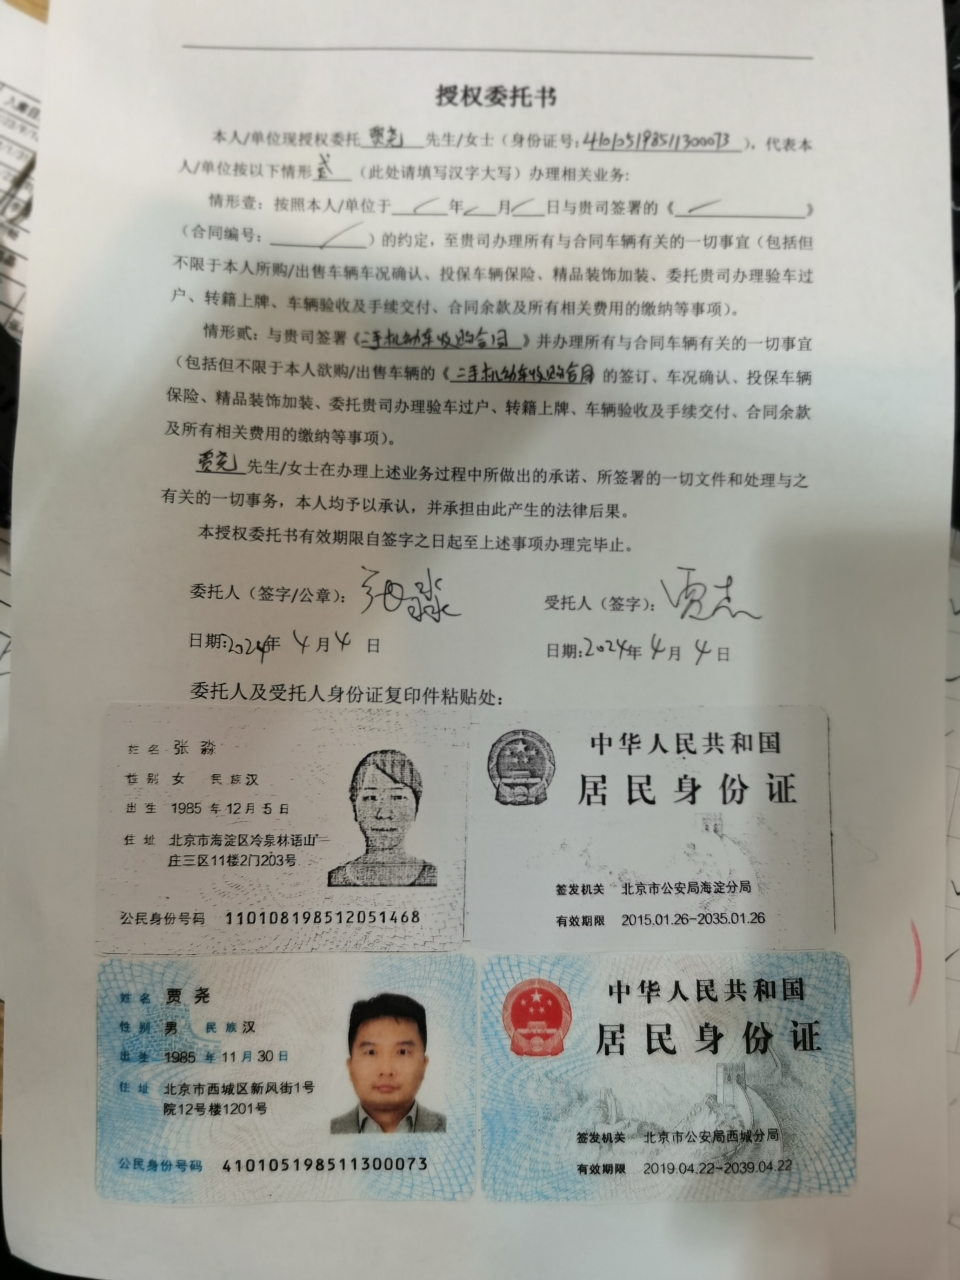 授权委托书
本人/单位现授权委托 贾尧 先生/女士（身份证号：410105198511300073），代表本
人/单位按以下情形 贰 （此处请填写汉字大写）办理相关业务：
情形壹：按照本人/单位于 年 月 日与贵司签署的《 》
（合同编号： ）的约定，至贵司办理所有与合同车辆有关的一切事宜（包括但
不限于本人所购/出售车辆车况确认、投保车辆保险、精品装饰加装、委托贵司办理验车过
户、转籍上牌、车辆验收及手续交付、合同余款及所有相关费用的缴纳等事项）。
情形贰：与贵司签署《二手机动车收购合同》并办理所有与合同车辆有关的一切事宜
（包括但不限于本人欲购/出售车辆的《二手机动车收购合同 的签订、车况确认、投保车辆
保险、精品装饰加装、委托贵司办理验车过户、转籍上牌、车辆验收及手续交付、合同余款
及所有相关费用的缴纳等事项）。
贾尧 先生/女士在办理上述业务过程中所做出的承诺、所签署的一切文件和处理与之
有关的一切事务，本人均予以承认，并承担由此产生的法律后果。
本授权委托书有效期限自签字之日起至上述事项办理完毕止。
委托人（签字/公章）：张淼 受托人（签字）：贾
日期：2024年 4 月 4 日 日期：2024年 4 月 4 日
委托人及受托人身份证复印件粘贴处：
姓名 张淼
性别 女 民族 汉
出生 1985 年 12 月 5 日
住址 北京市海淀区冷泉林语山
庄三区11楼2门203号
公民身份号码 110108198512051468
中华人民共和国
居民身份证
签发机关 北京市公安局海淀分局
有效期限 2015.01.26-2035.01.26
姓名 贾尧
性别 男 民族 汉
出生 1985 年 11 月 30 日
住址 北京市西城区新风街1号
院12号楼1201号
公民身份号码 410105198511300073
中华人民共和国
居民身份证
签发机关 北京市公安局西城分局
有效期限 2019.04.22-2039.04.22